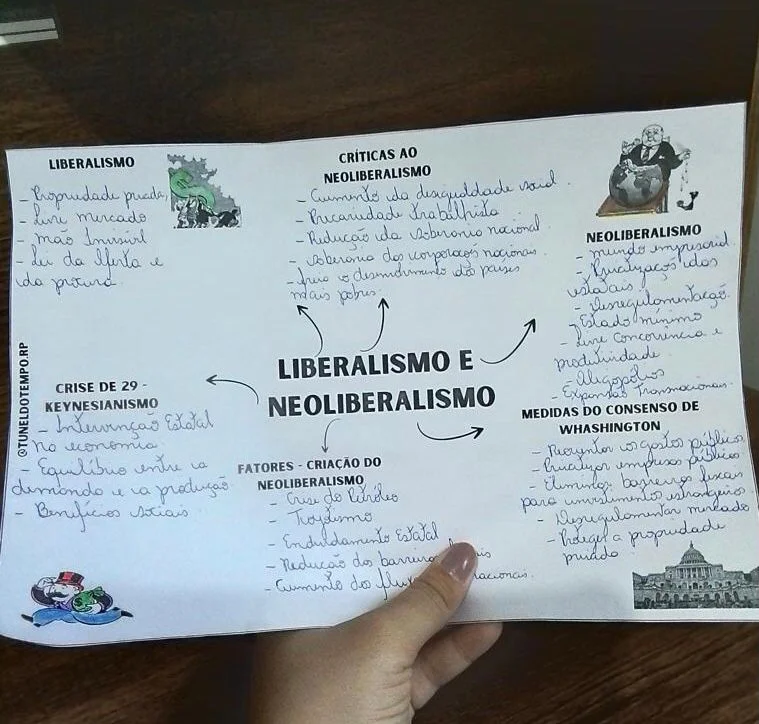 LIBERALISMO
- Propriedade privada,
- Livre mercado
- mão Invisível
- Lei da Oferta e
da procura.
CRÍTICAS AO
NEOLIBERALISMO
- Aumento da desigualdade social.
- Precariedade Trabalhista
- Redução da soberania nacional
- soberania das corporações nacionais.
- freio o desenvolvimento dos países
mais pobres.
NEOLIBERALISMO
- mundo empresarial.
- Privatizações das
estatais
- Desregulamentação.
- Estado mínimo
- Livre Concorrência e
produtividade.
- Oligopólios
- Expansão Transnacionais.
LIBERALISMO E
NEOLIBERALISMO
@TUNELDOTEMPO.RP
CRISE DE 29 -
KEYNESIANISMO
- Intervenção Estatal
na economia.
- Equilíbrio entre a
demanda e a produção.
- Benefícios sociais
FATORES - CRIAÇÃO DO
NEOLIBERALISMO
- Crise do Petróleo
- Toyotismo
- Endividamento Estatal
- Redução das barreiras
- Aumento dos
MEDIDAS DO CONSENSO DE
WHASHINGTON
- os gastos públicos
- Privatizar empresas públicas
- Eliminar barreiras fiscais
para investimentos estrangeiros.
- Desregulamentar mercado
- Proteger a propriedade
privada.